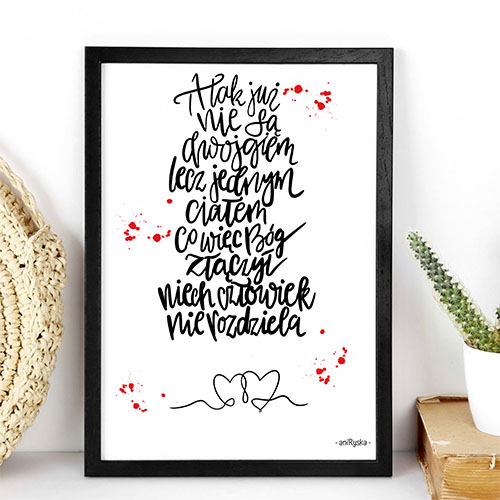 A tak już
nie są
dwojgiem
lecz jednym
ciałem
co więc Bóg
złączył
niech człowiek
nie rozdziela
- aniRyska -